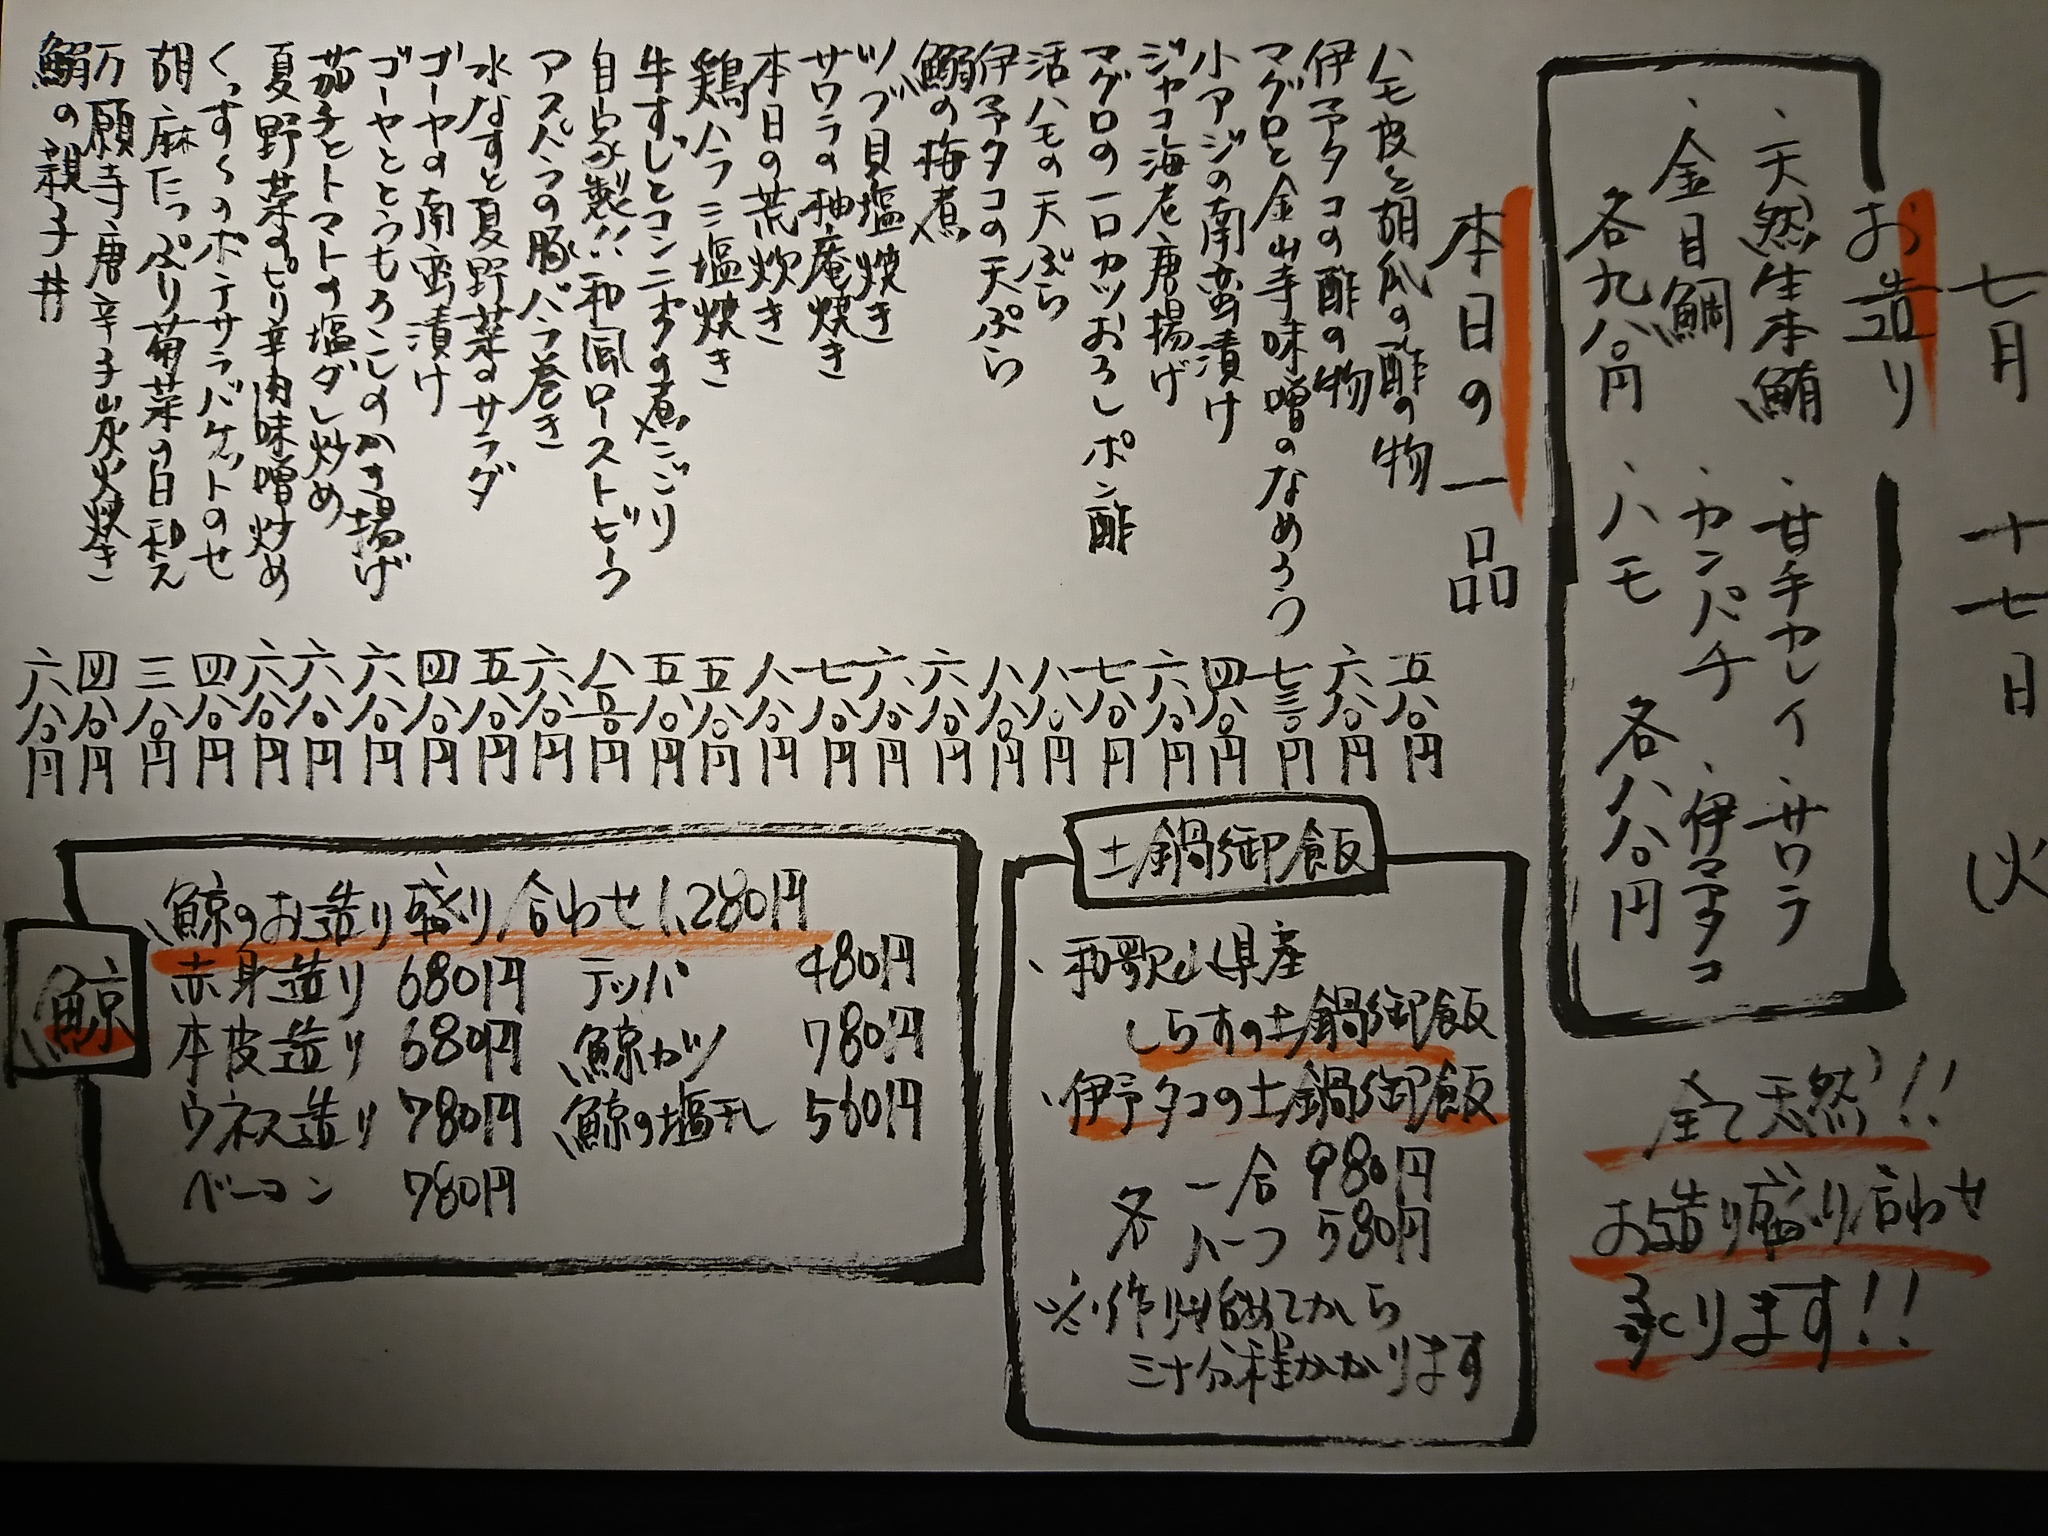 七月 十七日 火
お造り
・天然生本鮪
・金目鯛
各九八〇円
・甘手カレイ ・サワラ
・カンパチ ・伊予タコ
・ハモ 各八八〇円
全て天然!!
お造り盛り合わせ
承ります!!
本日の一品
ハモ皮と胡瓜の酢の物 五八〇円
伊予タコの酢の物 六八〇円
マグロと金山寺味噌のなめろう 七三〇円
小アジの南蛮漬け 四八〇円
ジャコ海老唐揚げ 六八〇円
マグロの一口カツおろしポン酢 七八〇円
活ハモの天ぷら 八八〇円
伊予タコの天ぷら 八八〇円
鰯の梅煮 六八〇円
ツブ貝塩焼き 六八〇円
サワラの柚庵焼き 七八〇円
本日の荒炊き 八八〇円
鶏ハラミ塩焼き 五八〇円
牛すじとコンニャクの煮こごり 五八〇円
自家製!!和風ローストビーフ 八八〇円
アスパラの豚バラ巻き 六八〇円
水なすと夏野菜のサラダ 五八〇円
ゴーヤの南蛮漬け 四八〇円
ゴーヤととうもろこしのかき揚げ 六八〇円
茄子とトマトの塩ダレ炒め 六八〇円
夏野菜のピリ辛肉味噌炒め 六八〇円
くっすくのポテサラバケットのせ 四八〇円
胡麻たっぷり菊菜の白和え 三八〇円
万願寺唐辛子炭火焼き 四八〇円
鰯の親子丼 六八〇円
土鍋御飯
・和歌山県産
しらすの土鍋御飯
・伊予タコの土鍋御飯
各 一合 980円
ハーフ 580円
※作り始めてから
三十分程かかります
鯨
鯨のお造り盛り合わせ 1,280円
赤身造り 680円 テッパ 480円
本皮造り 680円 鯨カツ 780円
ウネス造り 780円 鯨の塩干し 560円
ベーコン 780円